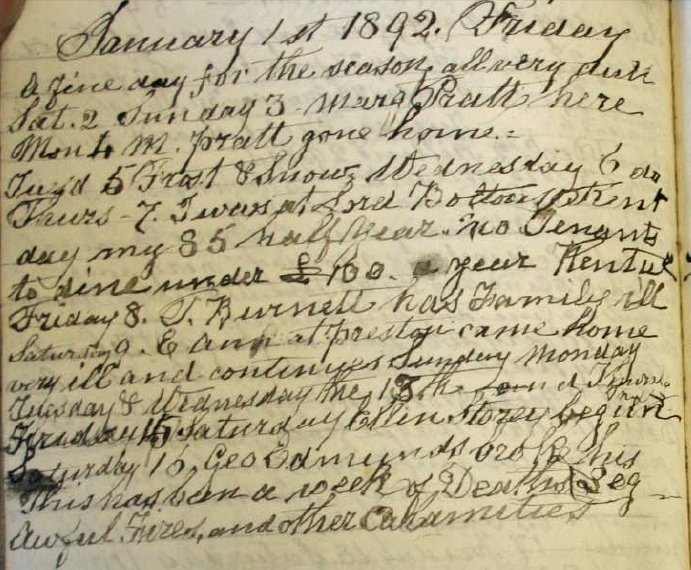 January 1st 1892. Friday
A fine day for the season, all very dull
Sat. 2 Sunday 3 Marg Pratt here
Mon 4 M. Pratt gone home.=
Tuesd 5 Frost & Snow, Wednesday 6 do
Thurs - 7. I was at Lord Boltons Rent
day my 85 half year. no Tenants
to dine under £100. a year Rental
Friday 8. T. Burnett has Family ill
Saturday 9. E Ann at Preston came home
very ill and continues Sunday Monday
Tuesday & Wednesday the 13th and Thurs
Friday 15 Saturday Ellen Storey begun
Saturday 16 Geo Edmunds broke his Leg
This has been a week of Deaths
Awful Fires, and other Calamities